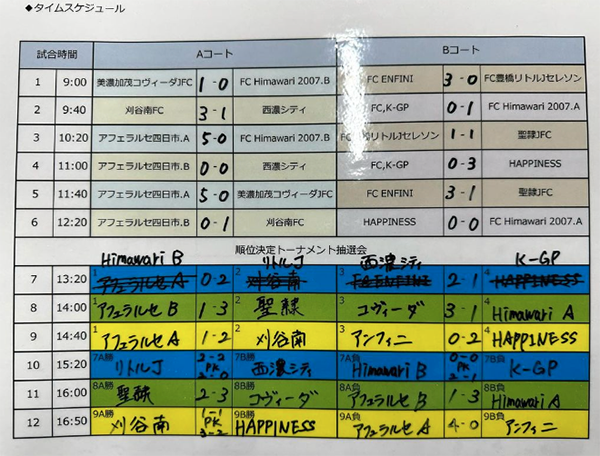 ◆タイムスケジュール
試合時間 Aコート Bコート
1 9:00 美濃加茂コヴィーダJFC 1-0 FC Himawari 2007.B FC ENFINI 3-0 FC豊橋リトルJセレソン
2 9:40 刈谷南FC 3-1 西濃シティ FC,K-GP 0-1 FC Himawari 2007.A
3 10:20 アフェラルセ四日市.A 5-0 FC Himawari 2007.B リトルJセレソン 1-1 聖隷JFC
4 11:00 アフェラルセ四日市.B 0-0 西濃シティ FC,K-GP 0-3 HAPPINESS
5 11:40 アフェラルセ四日市.A 5-0 美濃加茂コヴィーダJFC FC ENFINI 3-1 聖隷JFC
6 12:20 アフェラルセ四日市.B 0-1 刈谷南FC HAPPINESS 0-0 FC Himawari 2007.A
順位決定トーナメント抽選会
Himawari B リトルJ 西濃シティ K-GP
7 13:20 1 アフェラルセA 0-2 2 刈谷南 3 FC ENFINI 2-1 4 HAPPINESS
8 14:00 1 アフェラルセB 1-3 2 聖隷 3 コヴィーダ 3-1 4 Himawari A
9 14:40 1 アフェラルセA 1-2 2 刈谷南 3 アンフィニ 0-2 4 HAPPINESS
10 15:20 7A勝 リトルJ 2-2 PK 7B勝 西濃シティ 7A負 Himawari B 0-0 PK 2-1 7B負 K-GP
11 16:00 8A勝 聖隷 2-3 8B勝 コヴィーダ 8A負 アフェラルセB 1-3 8B負 Himawari A
12 16:50 9A勝 刈谷南 1-1 PK 3-2 9B勝 HAPPINESS 9A負 アフェラルセA 4-0 9B負 アンフィニ